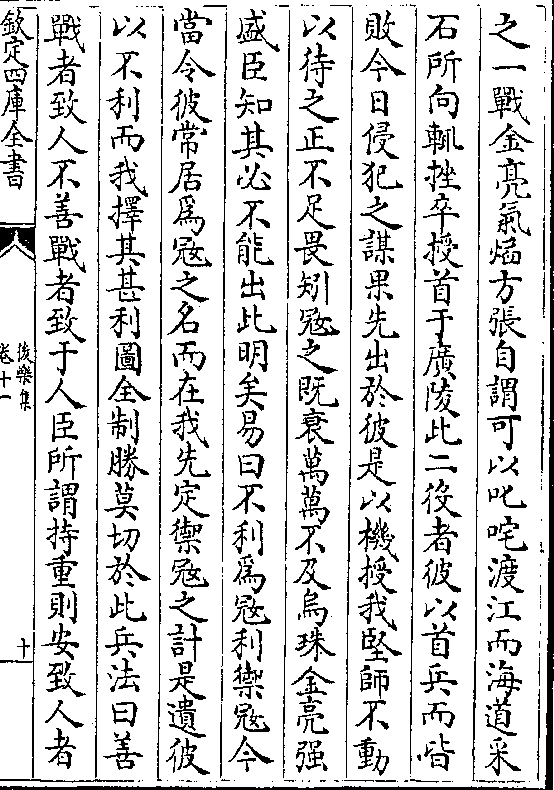 之一戰金亮氣焰方張自謂可以叱咤渡江而海道采
石所向輒挫卒授首于廣陵此二役者彼以首兵而皆
敗今日侵犯之謀果先出於彼是以機授我堅師不動
以待之正不足畏矧冦之既衰萬萬不及烏珠金亮强
盛臣知其必不能出此明矣易曰不利為冦利禦冦今
當令彼常居為冦之名而在我先定禦冦之計是遺彼
以不利而我擇其甚利圖全制勝莫切於此兵法曰善
戰者致人不善戰者致于人臣所謂持重則安致人者
欽定四庫全書
後樂集
卷十一
十